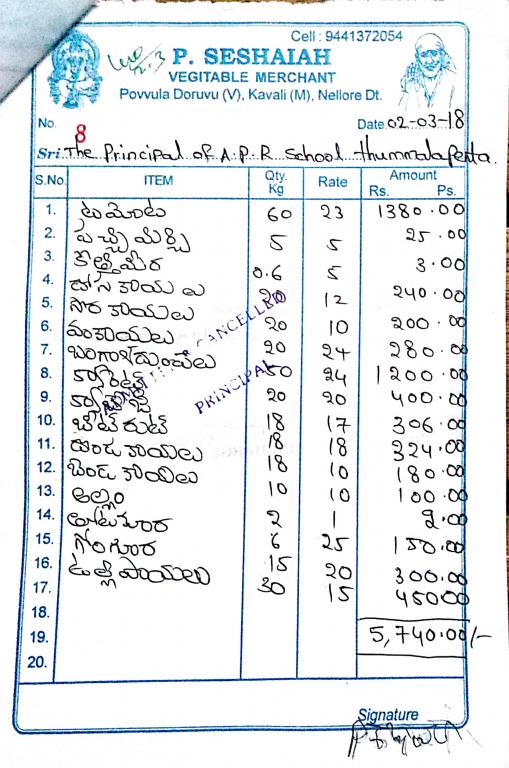 Cell : 9441372054
P. SESHAIAH
VEGITABLE MERCHANT
Povvula Doruvu (V), Kavali (M), Nellore Dt.
No. 8 Date. 02-03-18
Sri. The Principal of A.P.R School thummalapenta
S.No. ITEM Qty. Kg Rate Amount Rs. Ps.
1. టమోటా 60 23 1380.00
2. పచ్చిమిర్చి 5 5 25.00
3. కొత్తిమీర 0.6 5 3.00
4. దోసకాయలు 20 12 240.00
5. సొరకాయలు 20 10 200.00
6. వంకాయలు 20 24 280.00
7. బంగాళదుంపలు 50 24 1200.00
8. క్యారెట్ 20 20 400.00
9. క్యాబేజి 18 17 306.00
10. బీట్ రూట్ 18 18 324.00
11. దొండకాయలు 18 10 180.00
12. బెండకాయలు 10 10 100.00
13. అల్లం 2 1 2.00
14. తోటకూర 6 25 150.00
15. గోంగూర 15 20 300.00
16. ఉల్లిపాయలు 30 15 450.00
17.
18.
19. 5,740.00/-
20.
CANCELLED
PRINCIPAL
Signature